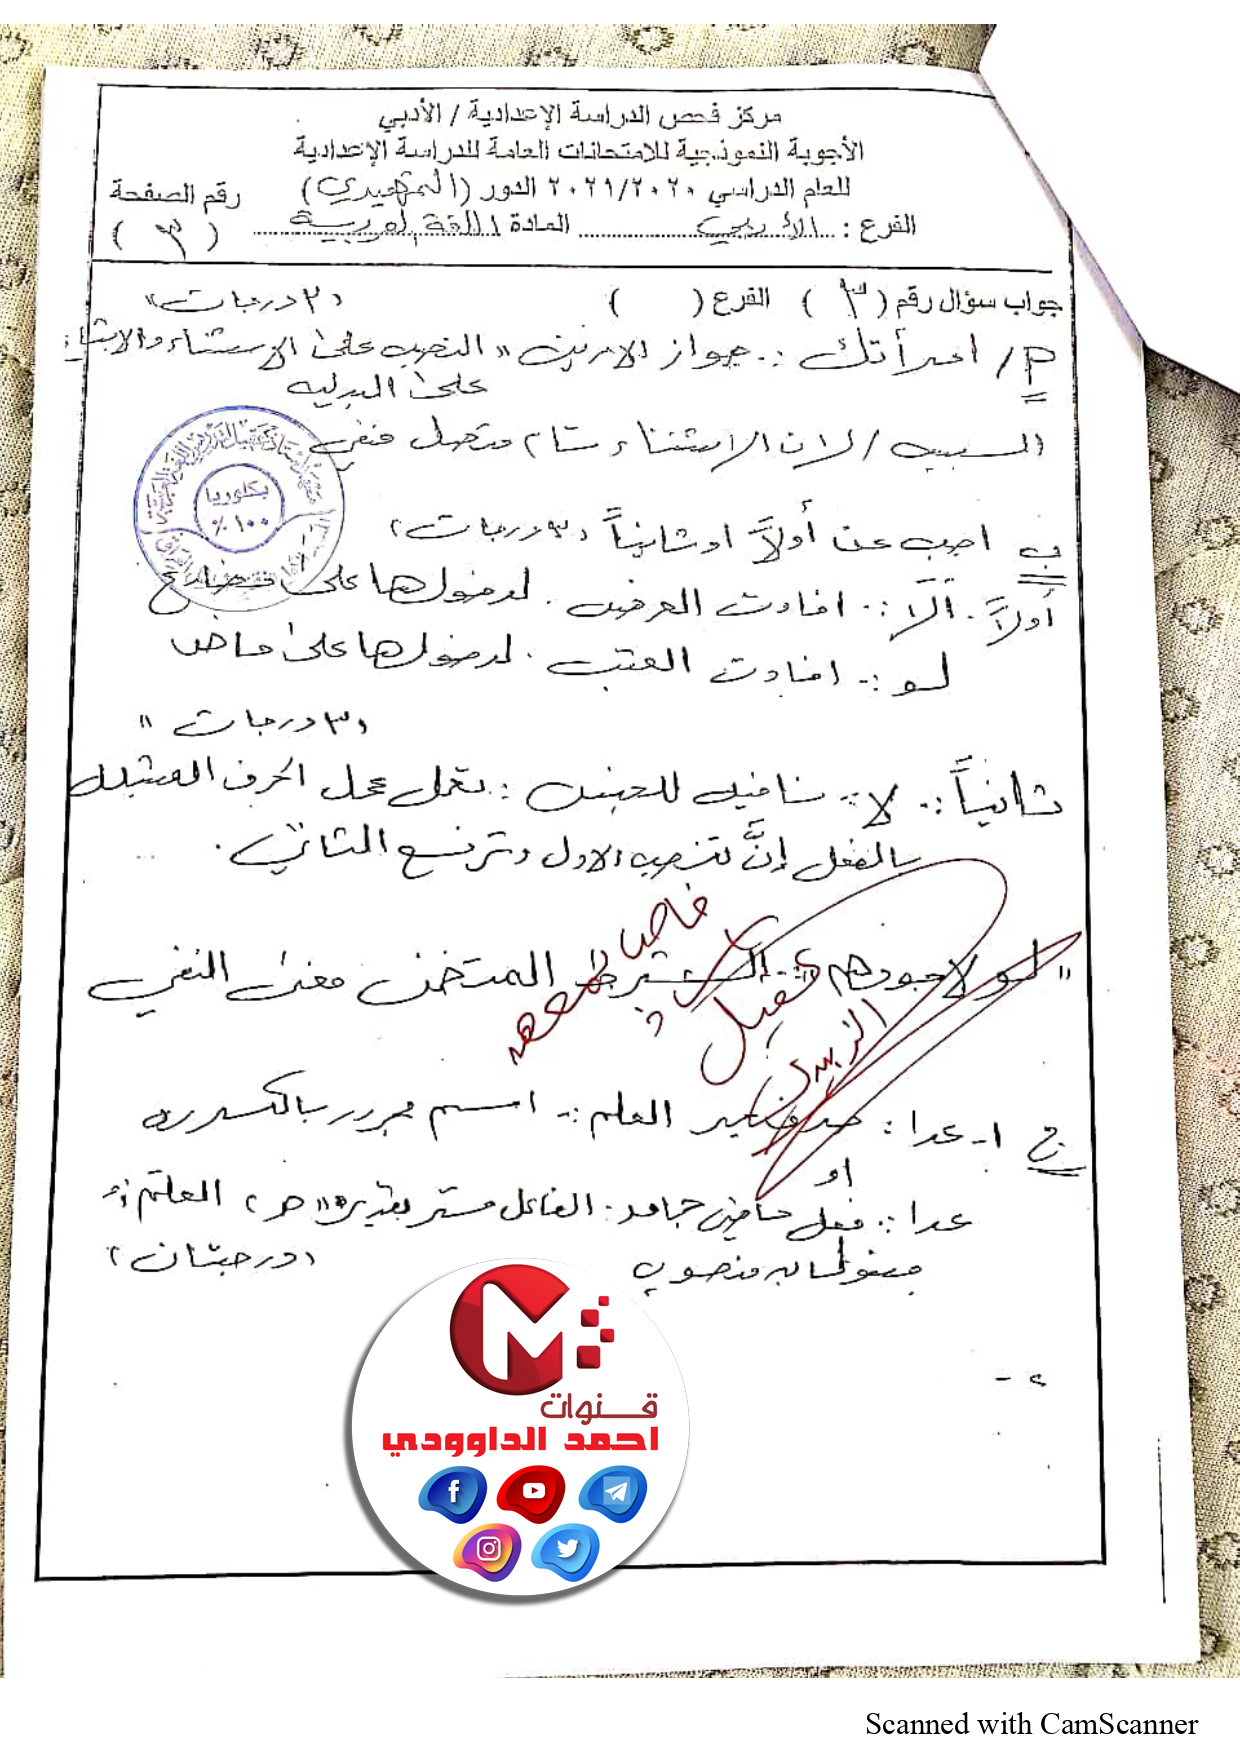 مركز فحص الدراسة الإعدادية / الأدبي
الأجوبة النموذجية للامتحانات العامة للدراسة الإعدادية
للعام الدراسي ٢٠٢١/٢٠٢٠ الدور (التمهيدي)
رقم الصفحة
الفرع : الأدبي المادة اللغة العربية
( ٣ )
جواب سؤال رقم ( ٣ ) الفرع ( )
أ/ امرأتك :- جواز الامرين " النصب على الاستثناء والاتباع
على البدلية
السبب / لان الاستثناء تام متصل منفي
بكلوريا
١٠٠٪
ب اجب عن أولاً او ثانياً (٣ درجات)
أولاً- ألا :- افادت العرض . لدخولها على مضارع
لو :- افادت العتب . لدخولها على ماضٍ
(٣ درجات "
ثانياً :- لا :- نافية للجنس : تعمل عمل الحرف المشبه
بالفعل إنَّ تنصب الاول وترفع الثاني .
المتضمن معنى النفي
عقيل
الزبيدي
ج ١- عدا : حرف جر العلم :- اسم مجرور بالكسرة
او
عدا :- فعل ماضي جامد : الفاعل مستتر تقديره " هو " العلم :-
مفعول به منصوب
(درجتان)
٢ -
قنوات
احمد الداوودي
Scanned with CamScanner